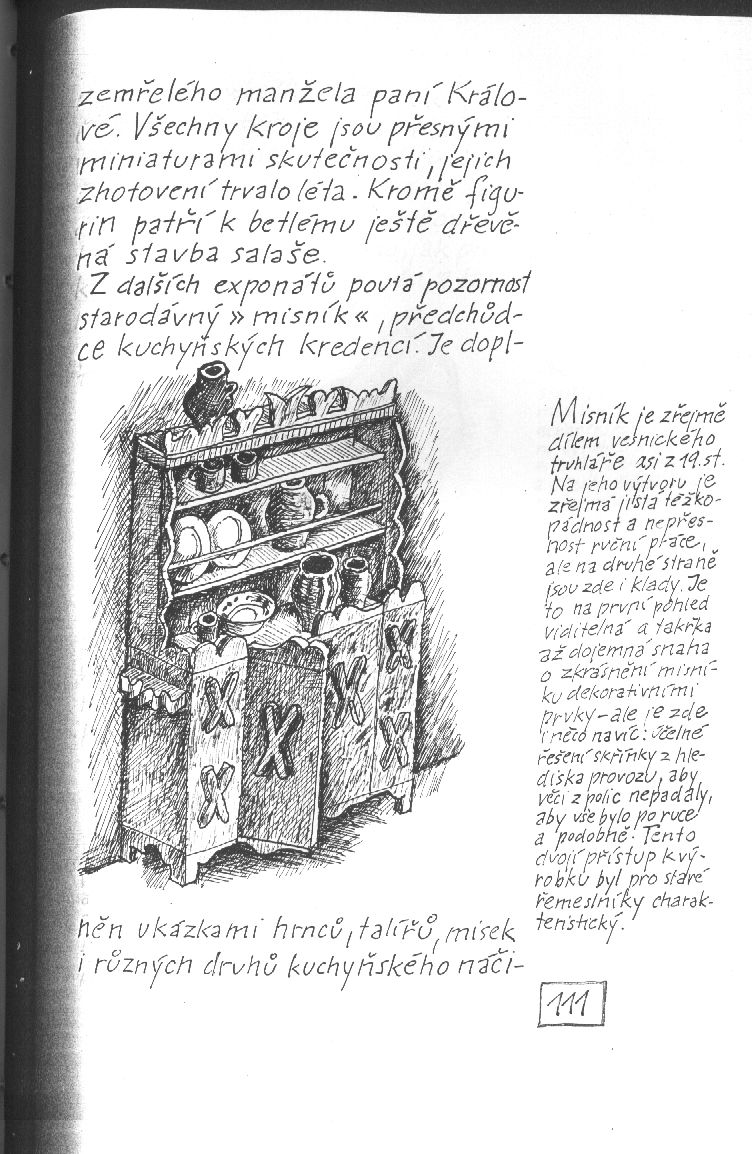 zemřelého manžela paní Králo-
vé. Všechny kroje jsou přesnými
miniaturami skutečnosti, jejich
zhotovení trvalo léta. Kromě figu-
rin patří k betlému ještě dřevě-
ná stavba salaše.
Z dalších exponátů poutá pozornost
starodávný »misník«, předchůd-
ce kuchyňských kredencí. Je dopl-
něn ukázkami hrnců, talířů, misek
i různých druhů kuchyňského náči-
Misník je zřejmě
dílem vesnického
truhláře asi z 19. st.
Na jeho výtvoru je
zřejmá jistá těžko-
pádnost a nepřes-
nost ruční práce,
ale na druhé straně
jsou zde i klady. Je
to na první pohled
viditelná a takřka
až dojemná snaha
o zkrásnění misní-
ku dekorativními
prvky – ale je zde
i něco navíc: účelné
řešení skříňky z hle-
diska provozu, aby
věci z polic nepadaly,
aby vše bylo po ruce
a podobně. Tento
dvojí přístup k vý-
robku byl pro staré
řemeslníky charak-
teristický.
111